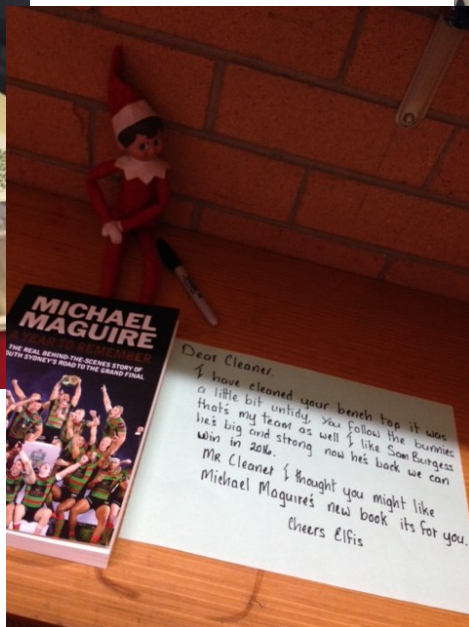 MICHAEL
MAGUIRE
A YEAR TO REMEMBER
THE REAL BEHIND-THE-SCENES STORY OF
SOUTH SYDNEY'S ROAD TO THE GRAND FINAL
Dear Cleaner.
I have cleaned your bench top it was
a little bit untidy. You follow the bunnies
that's my team as well I like Sam Burgess
he's big and strong now he's back we can
win in 2016.
MR Cleaner I thought you might like
Michael Maguire's new book its for you.
Cheers Elfis